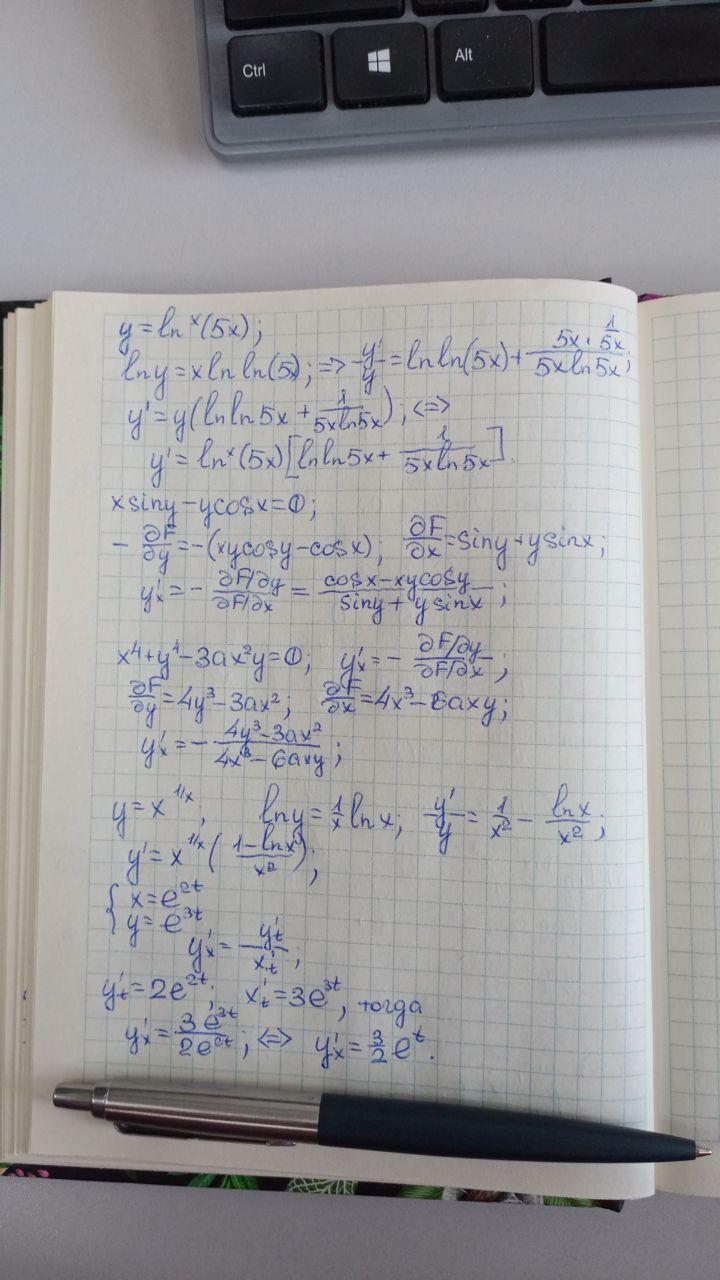 Ctrl Alt
y = lnˣ(5x);
ln y = x ln ln(5x); => y'/y = ln ln(5x) + (5x · 1/5x)/(5x ln 5x);
y' = y(ln ln 5x + 1/(5x ln 5x)); <=>
y' = lnˣ(5x)[ln ln 5x + 1/(5x ln 5x)].
x sin y - y cos x = 0;
- ∂F/∂y = -(xy cos y - cos x); ∂F/∂x = sin y + y sin x;
y'ₓ = - (∂F/∂y)/(∂F/∂x) = (cos x - xy cos y)/(sin y + y sin x);
x⁴ + y⁴ - 3ax²y = 0; y'ₓ = - (∂F/∂y)/(∂F/∂x);
∂F/∂y = 4y³ - 3ax²; ∂F/∂x = 4x³ - 6axy;
y'ₓ = - (4y³ - 3ax²)/(4x³ - 6axy);
y = x^(1/x); ln y = 1/x ln x; y'/y = 1/x² - ln x/x²;
y' = x^(1/x) ((1 - ln x)/x²);
{ x = e^(2t)
y = e^(3t)
y'ₓ = y'ₜ/x'ₜ;
y'ₜ = 2e^(2t); x'ₜ = 3e^(3t), тогда
y'ₓ = 3e^(3t)/2e^(2t); <=> y'ₓ = 3/2 e^t.